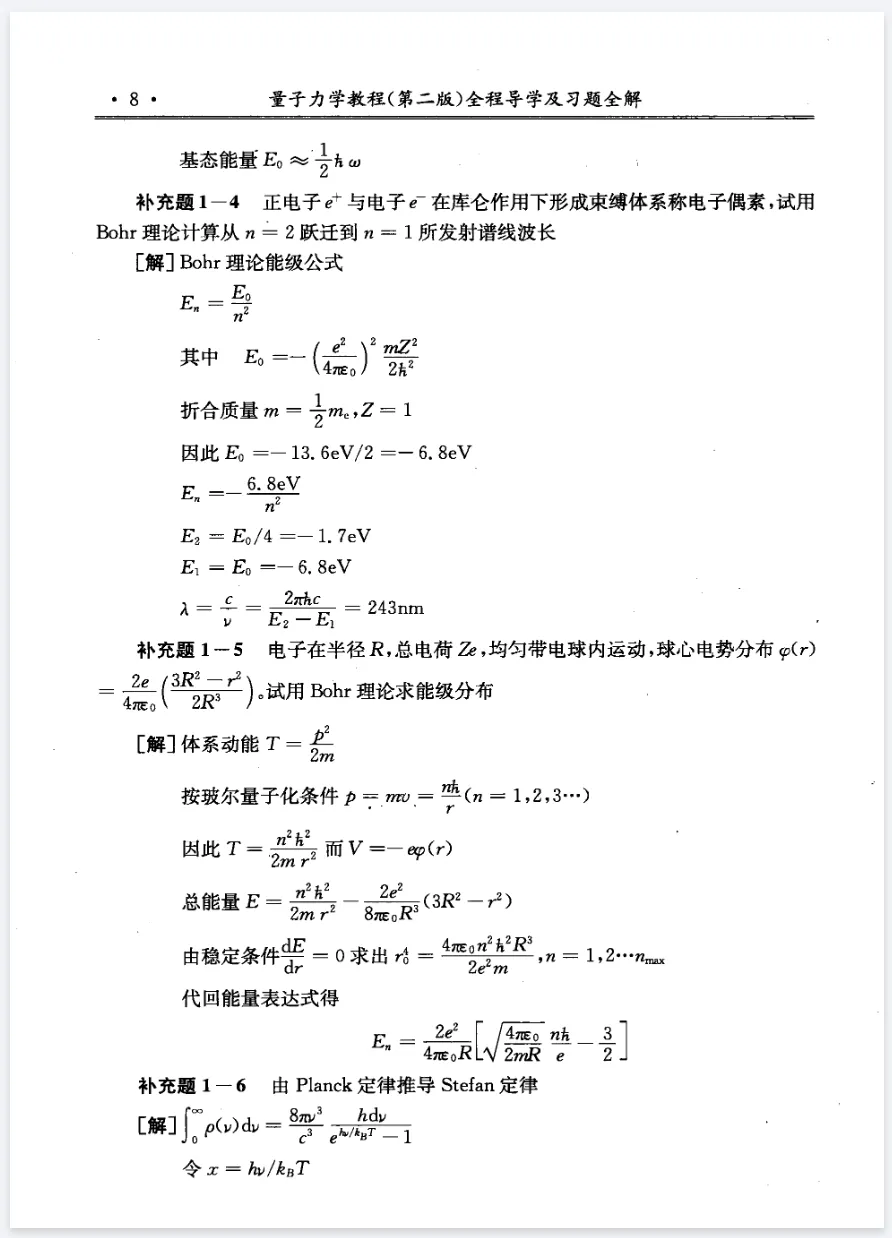 · 8 · 量子力学教程(第二版)全程导学及习题全解
基态能量 E₀ ≈ 1/2 ħω
补充题1-4 正电子 e⁺ 与电子 e⁻ 在库仑作用下形成束缚体系称电子偶素,试用
Bohr 理论计算从 n = 2 跃迁到 n = 1 所发射谱线波长
[解] Bohr 理论能级公式
Eₙ = E₀/n²
其中 E₀ = -(e²/4πε₀)² mZ²/2ħ²
折合质量 m = 1/2 mₑ, Z = 1
因此 E₀ = -13.6eV/2 = -6.8eV
Eₙ = -6.8eV/n²
E₂ = E₀/4 = -1.7eV
E₁ = E₀ = -6.8eV
λ = c/ν = 2πħc/(E₂ - E₁) = 243nm
补充题1-5 电子在半径 R,总电荷 Ze,均匀带电球内运动,球心电势分布 φ(r)
= 2e/4πε₀ ((3R² - r²)/2R³)。试用 Bohr 理论求能级分布
[解] 体系动能 T = p²/2m
按玻尔量子化条件 p = mv = nħ/r (n = 1,2,3…)
因此 T = n²ħ²/2m r² 而 V = -eφ(r)
总能量 E = n²ħ²/2m r² - 2e²/8πε₀R³ (3R² - r²)
由稳定条件 dE/dr = 0 求出 r₀⁴ = 4πε₀n²ħ²R³/2e²m, n = 1,2…nmax
代回能量表达式得
Eₙ = 2e²/4πε₀R [√(4πε₀/2mR) nħ/e - 3/2]
补充题1-6 由 Planck 定律推导 Stefan 定律
[解] ∫₀^∞ ρ(ν)dν = 8πν³/c³ hdν/(e^(hν/k_BT) - 1)
令 x = hν/k_BT